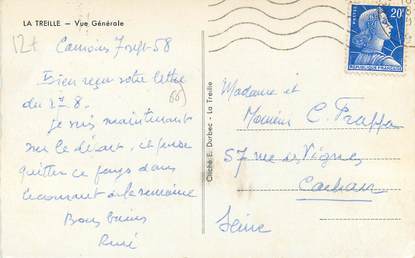 LA TREILLE — Vue Générale
12+
Camoins 7 sept 58
Bien reçu votre lettre
du 2-8.
66
je suis maintenant
sur le départ et pense
quitter ce pays dans
le courant de la semaine
Bons baisers
René
Cliché E. Durbec - La Treille
POSTES 20F
RÉPUBLIQUE FRANÇAISE
Madame et
Monsieur C.
57 rue des Vignes
Cachan
Seine